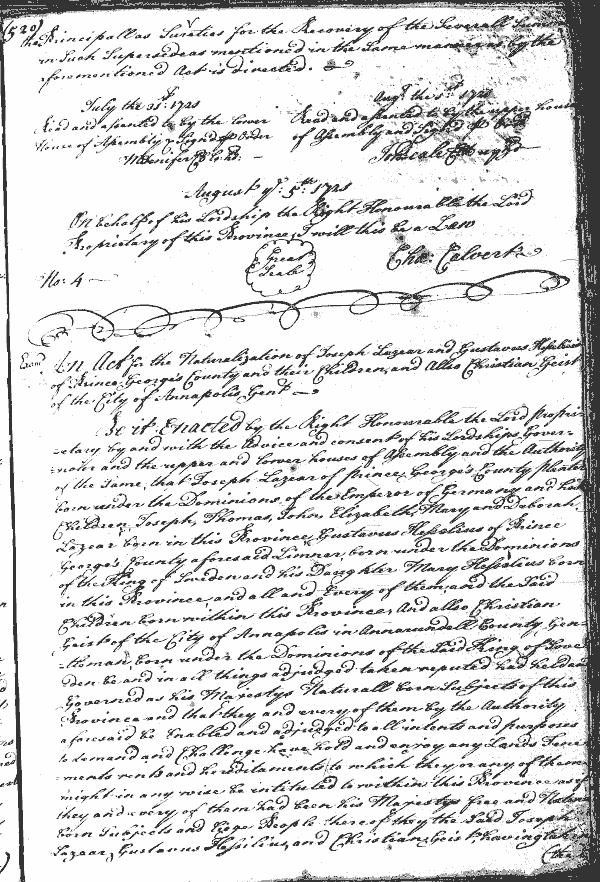 (520)
the Principall as Sureties for the Recovery of the Severall Sums
in Such Supersedeas mentioned in the Same manner as by the
aforementioned Act is directed.
July the 31st: 1721
Augt. the 1st 1721
Read and assented to by the Lower
House of Assembly & Signd p Order
Read and assented to by the upper house
of Assembly and Signd p Order
August ye. 5th: 1721
On behalf of his Lordship the Right Honourable the Lord
Proprietary of this Province, I will this be a Law
Great
Seale
Cha: Calvert
No: 4
Exam
An Act for the Naturalization of Joseph Lazear and Gustavus Hesselius
of Prince George's County and their Children, and Also Christian Geist
of the City of Annapolis Gent.
Be it Enacted by the Right Honourable the Lord Propri-
-etary by and with the Advice and consent of his Lordships Gover-
-nour and the upper and lower houses of Assembly and the Authority
of the Same, that Joseph Lazear of Prince George's County planter
born under the Dominions of the Emperor of Germany and his
Children, Joseph, Thomas, John, Elizabeth, Mary and Deborah
Lazear born in this Province, Gustavus Hesselius of Prince
George's County aforesaid Limner, born under the Dominions
of the King of Sueden and his Daughter Mary Hesselius born
in this Province and all and Every of them, and the Said
Children born within this Province, And also Christian
Geist of the City of Annapolis in Annarundall County, Gen-
-tleman, born under the Dominions of the Said King of Swe-
-den be and in all things adjudged taken reputed held and
Governed as his Majestys Naturall born Subjects of this
Province and that they and every of them by the Authority
aforesaid be Enabled and adjudged to all intents and purposes
to demand and Challenge have hold and enjoy any Lands Tene-
-ments rents and hereditaments to which they or any of them
might in any wise be intituled to within this Province as if
they and every of them had been his Majestys free and Natural
born Subjects and Liege People thereof they the Said Joseph
Lazear, Gustavus Hesselius, and Christian Geist, having taken
(the